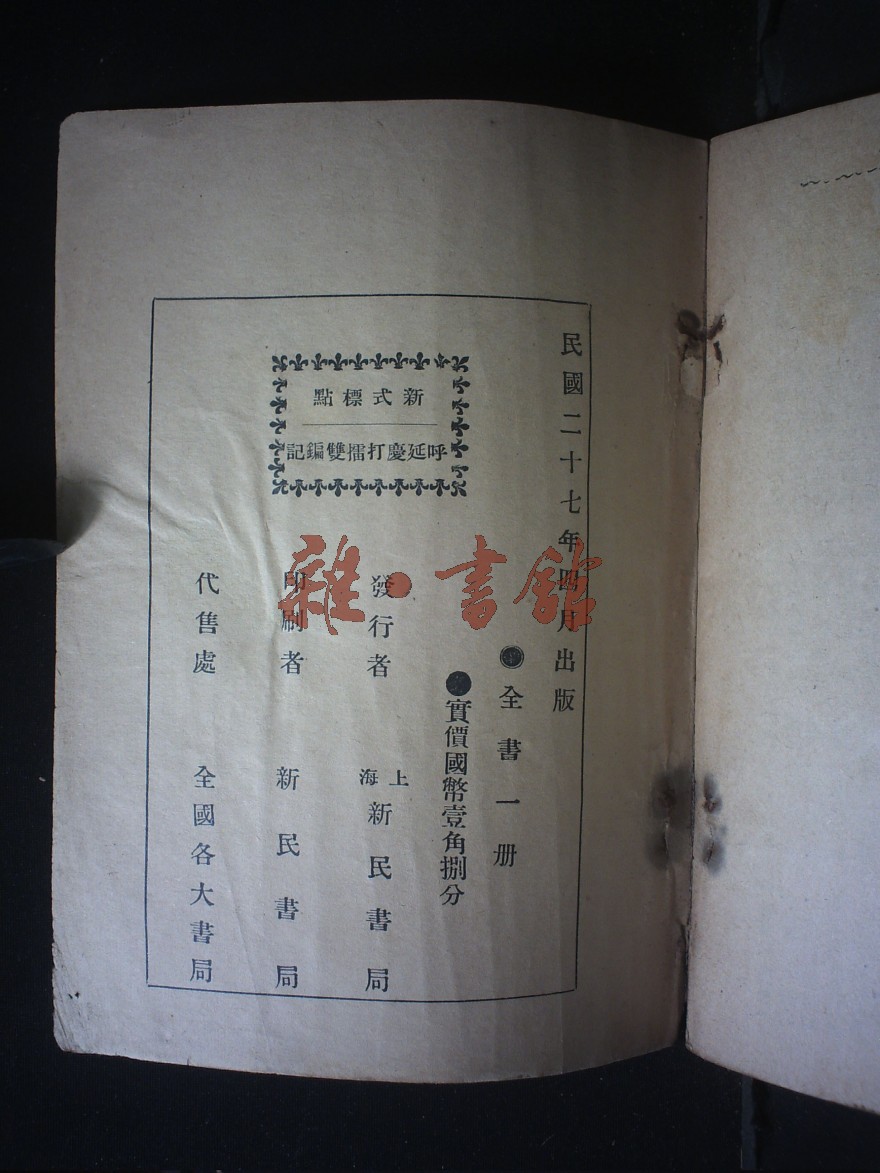 民國二十七年四月出版
●全書一册
●實價國幣壹角捌分
新式標點
呼延慶打擂雙鞭記
發行者 上海新民書局
印刷者 新民書局
代售處 全國各大書局
雜·書館